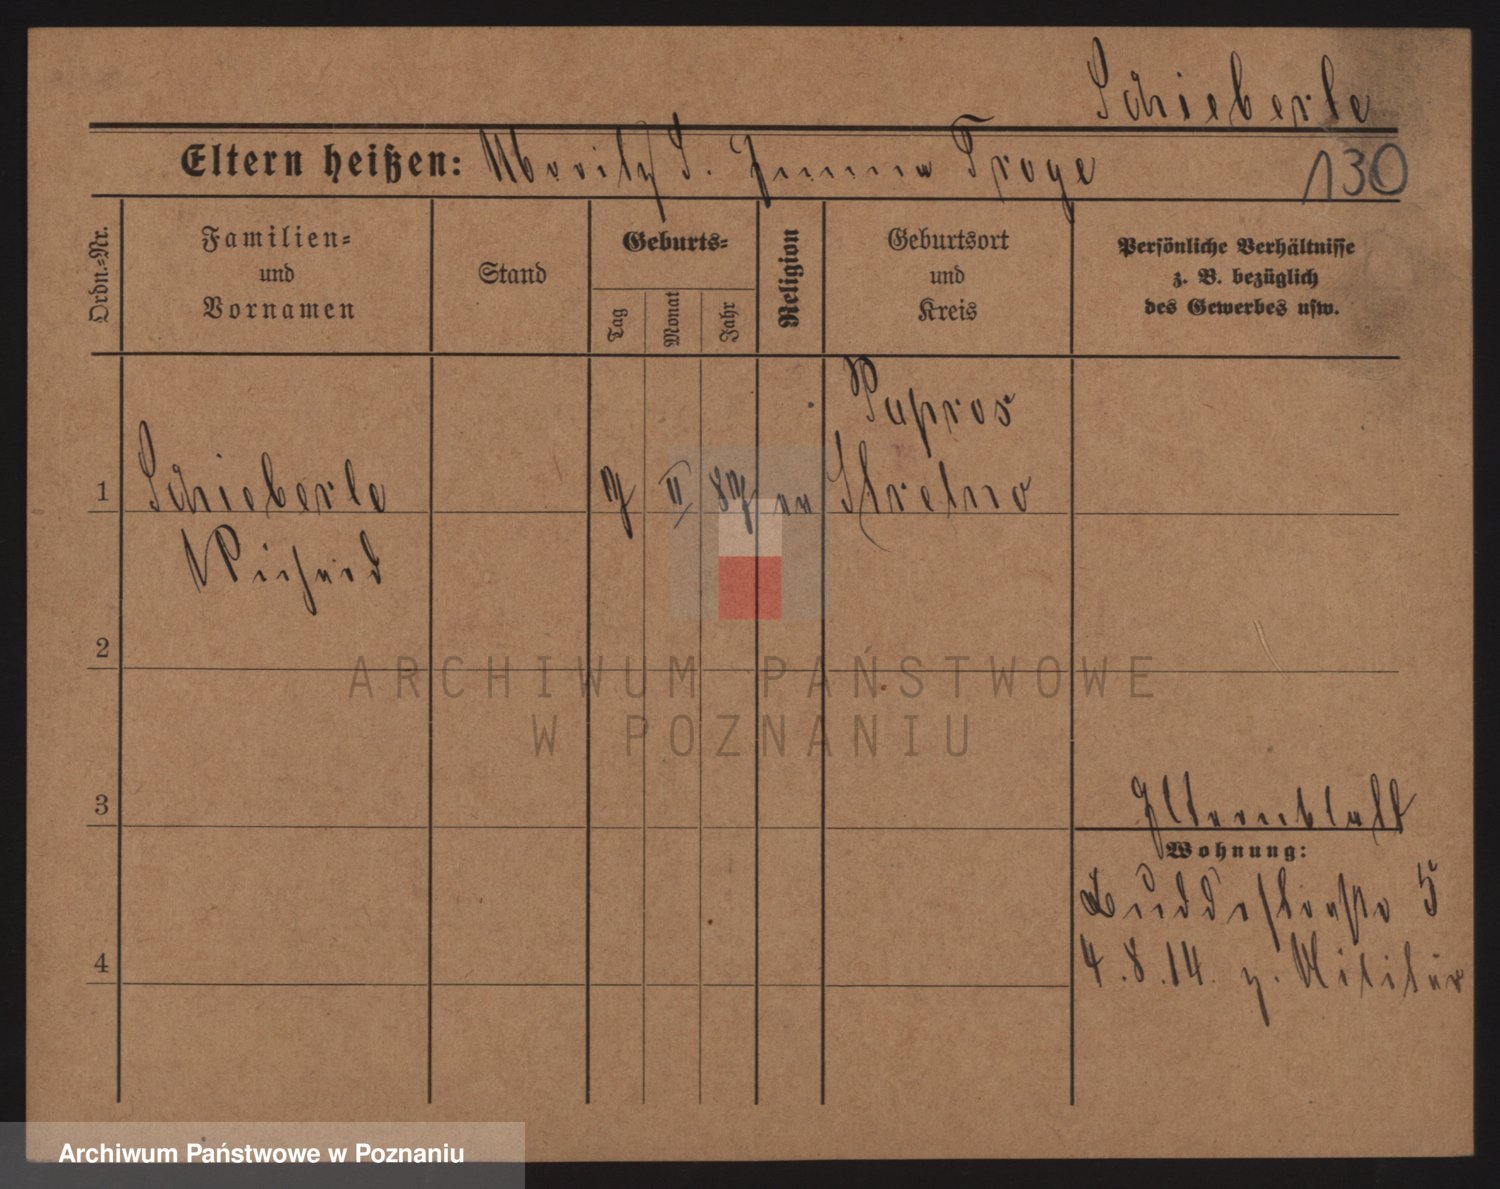 Schieberle
Eltern heißen: Moritz S. Emma Troge
130
Ordn.=Nr.
Familien=
und
Vornamen
Stand
Geburts=
Tag
Monat
Jahr
Religion
Geburtsort
und
Kreis
Persönliche Verhältnisse
z. B. bezüglich
des Gewerbes usw.
Papros
1 Schieberle 7 II 87 ev Strelno
Richard
2
ARCHIWUM PAŃSTWOWE
W POZNANIU
3
Elternblatt
Wohnung:
Buddestraße 5
4
4.8.14. z. Militär
Archiwum Państwowe w Poznaniu